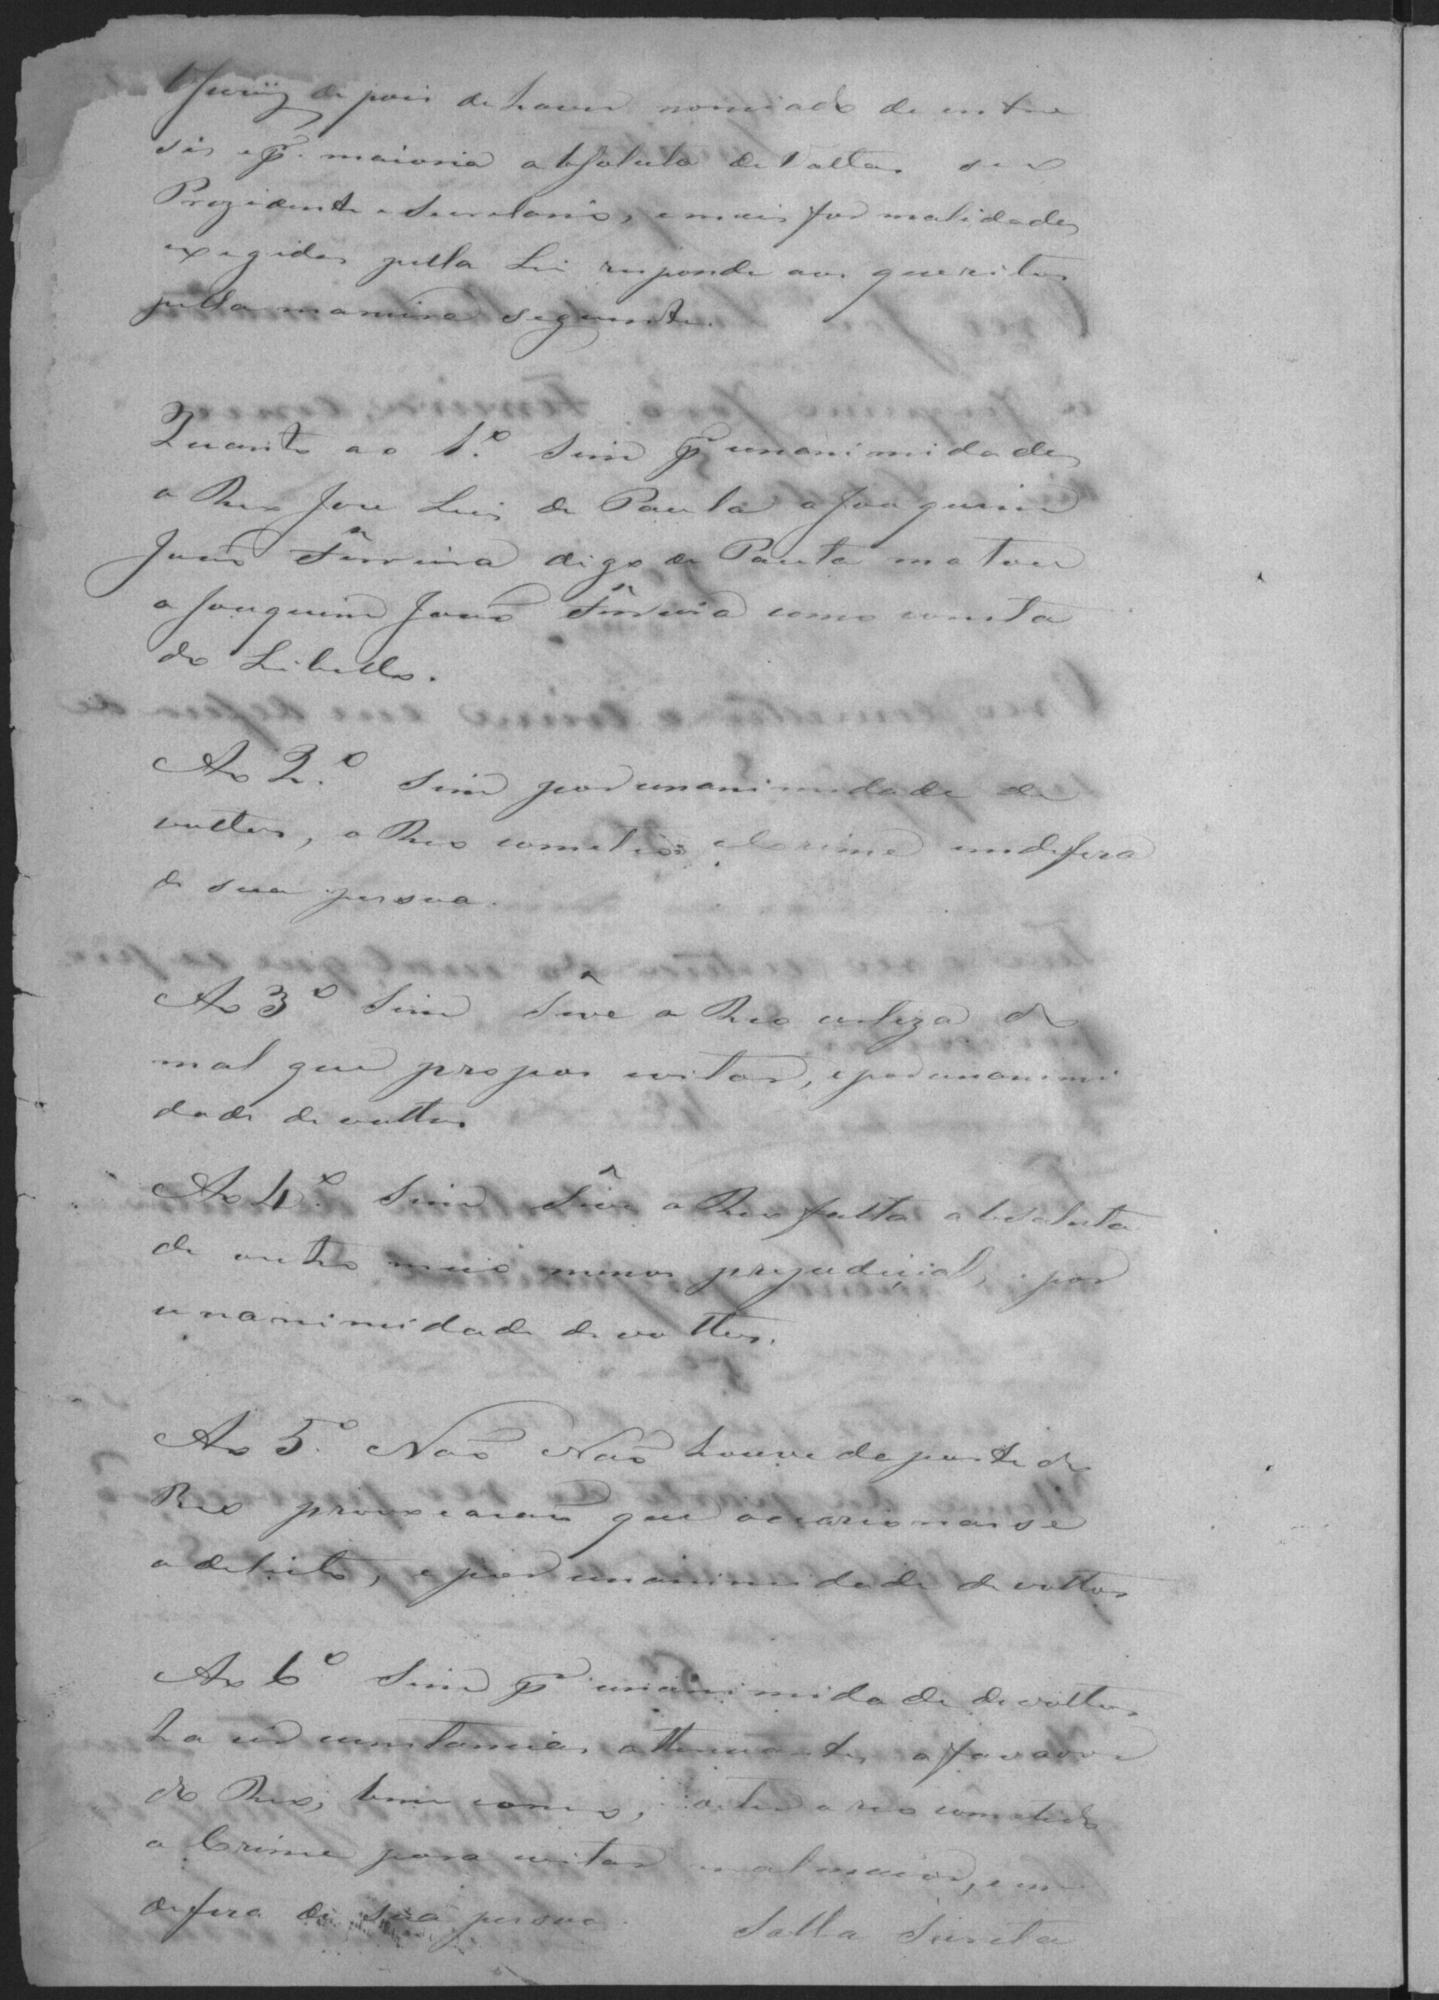 O Jurÿ de pois de haver nomiado de entre
sis e p.r maioria absoluta de Vottos seo
Prezidente e Secretario, e mais formalidades
exegidas pella Lei responde aos queritos
pella maneira seguinte.
Quanto ao 1.º Sim p.r unanimidades
o Reo Jose Luis de Paula a Joaquim
João Ferreira digo de Paula matou
a Joaquim João Ferreira como consta
do Libello.
Ao 2.º Sim por unanimidade de
vottos, o Reo cometeo o Crime em defeza
de sua pessoa.
Ao 3º Sim Teve o Reo certeza do
mal que propos evitar, e por unanimi
dade de vottos
Ao 4º. Sim Teve o Reo falta absoluta
de outro meio menos prejudicial, e por
unanimidade de vottos.
Ao 5.º Não Não houve da parte do
Reo provocacão que occazionasse
o delicto, e por unanimidade de vottos
Ao 6º Sim p.r unanimidade de vottos
ha circunstancias attenuantes a favaor
do Reo, bem como, o ter o reo cometido
o Crime para evitar mal maior, e em
defeza de sua pessoa. Salla Secreta